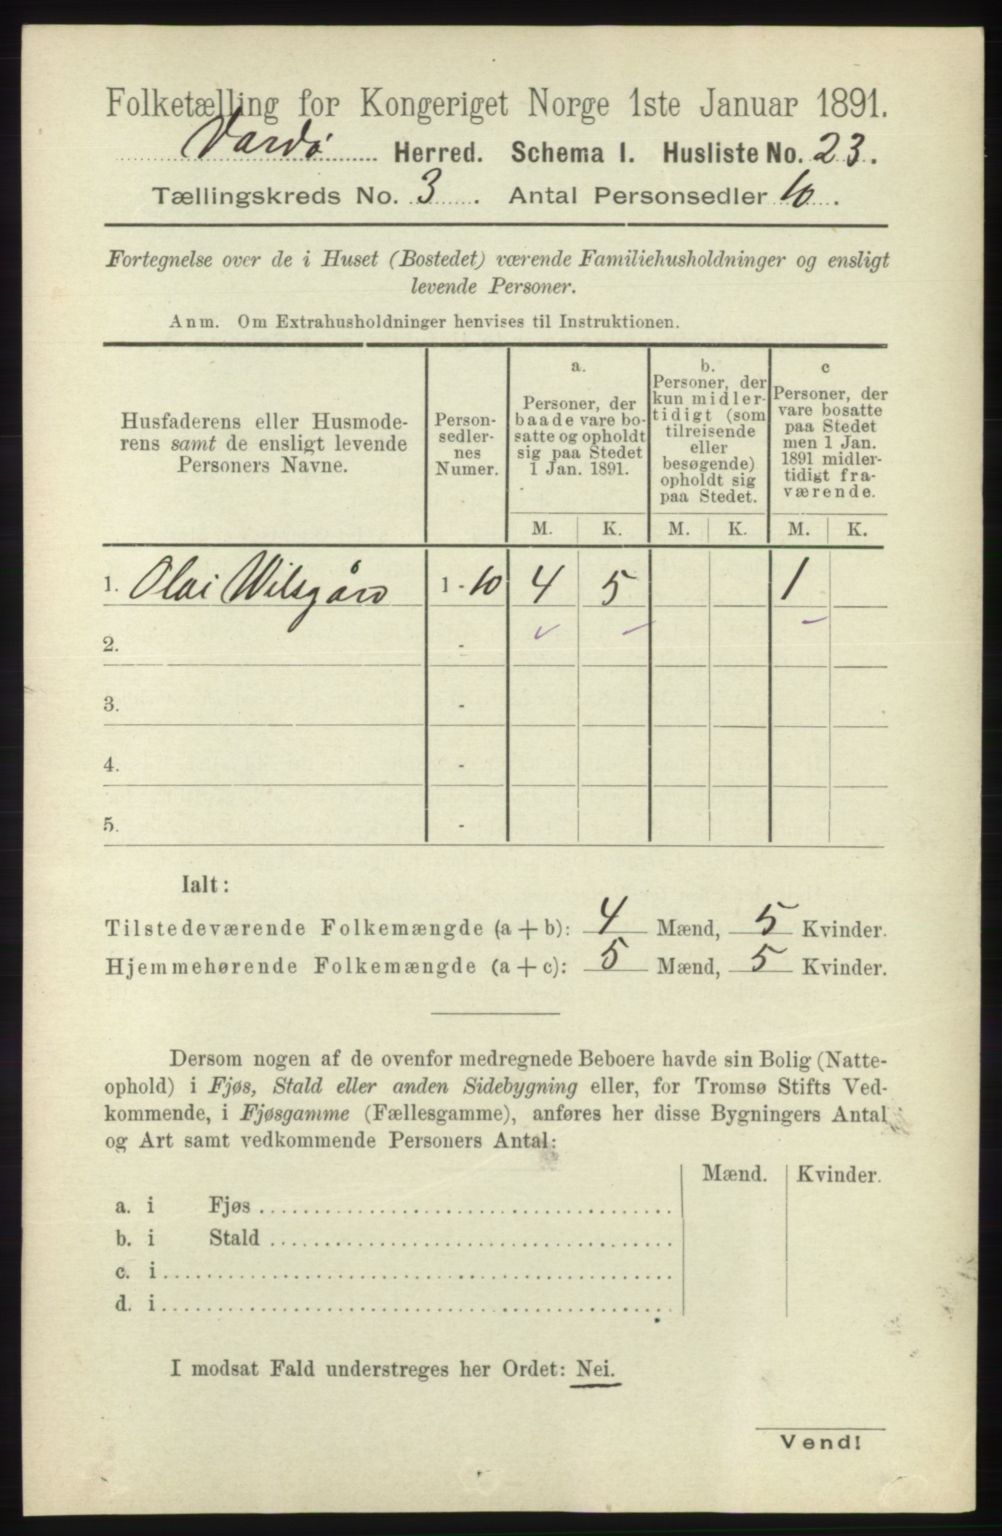 Folketælling for Kongeriget Norge 1ste Januar 1891.
Vardø Herred. Schema I. Husliste No. 23.
Tællingskreds No. 3. Antal Personsedler 10.
Fortegnelse over de i Huset (Bostedet) værende Familiehusholdninger og ensligt
levende Personer.
Anm. Om Extrahusholdninger henvises til Instruktionen.
Husfaderens eller Husmode-
rens samt de ensligt levende
Personers Navne.
Person-
sedler-
nes
Numer.
a.
Personer, der
baade vare bo-
satte og opholdt
sig paa Stedet
1 Jan. 1891.
b.
Personer, der
kun midler-
tidigt (som
tilreisende
eller
besøgende)
opholdt sig
paa Stedet.
c
Personer, der
vare bosatte
paa Stedet
men 1 Jan.
1891 midler-
tidigt fra-
værende.
M. K. M. K. M. K.
1. Olai Wilsgård 1-10 4 5 1
2. -
3. -
4. -
5. -
Ialt:
Tilstedeværende Folkemængde (a + b): 4 Mænd, 5 Kvinder.
Hjemmehørende Folkemængde (a + c): 5 Mænd, 5 Kvinder.
Dersom nogen af de ovenfor medregnede Beboere havde sin Bolig (Natte-
ophold) i Fjøs, Stald eller anden Sidebygning eller, for Tromsø Stifts Ved-
kommende, i Fjøsgamme (Fællesgamme), anføres her disse Bygningers Antal
og Art samt vedkommende Personers Antal:
Mænd. Kvinder.
a. i Fjøs
b. i Stald
c. i
d. i
I modsat Fald understreges her Ordet: Nei.
Vend!